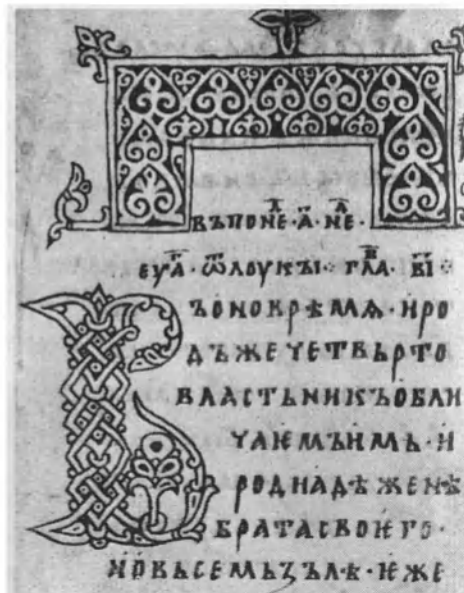 въ поне · а҃ · не҃ ·
еуа҃ · ѿ лоукꙑ · гла҃ · в҃і ჻
Въ оно крѣмѧ · иро
дъ же четвьрто
властьникъ обли
чаѥмъ имь · и
родиадѣ женѣ
брата своѥго ·
и о вьсемь зълѣ · иже